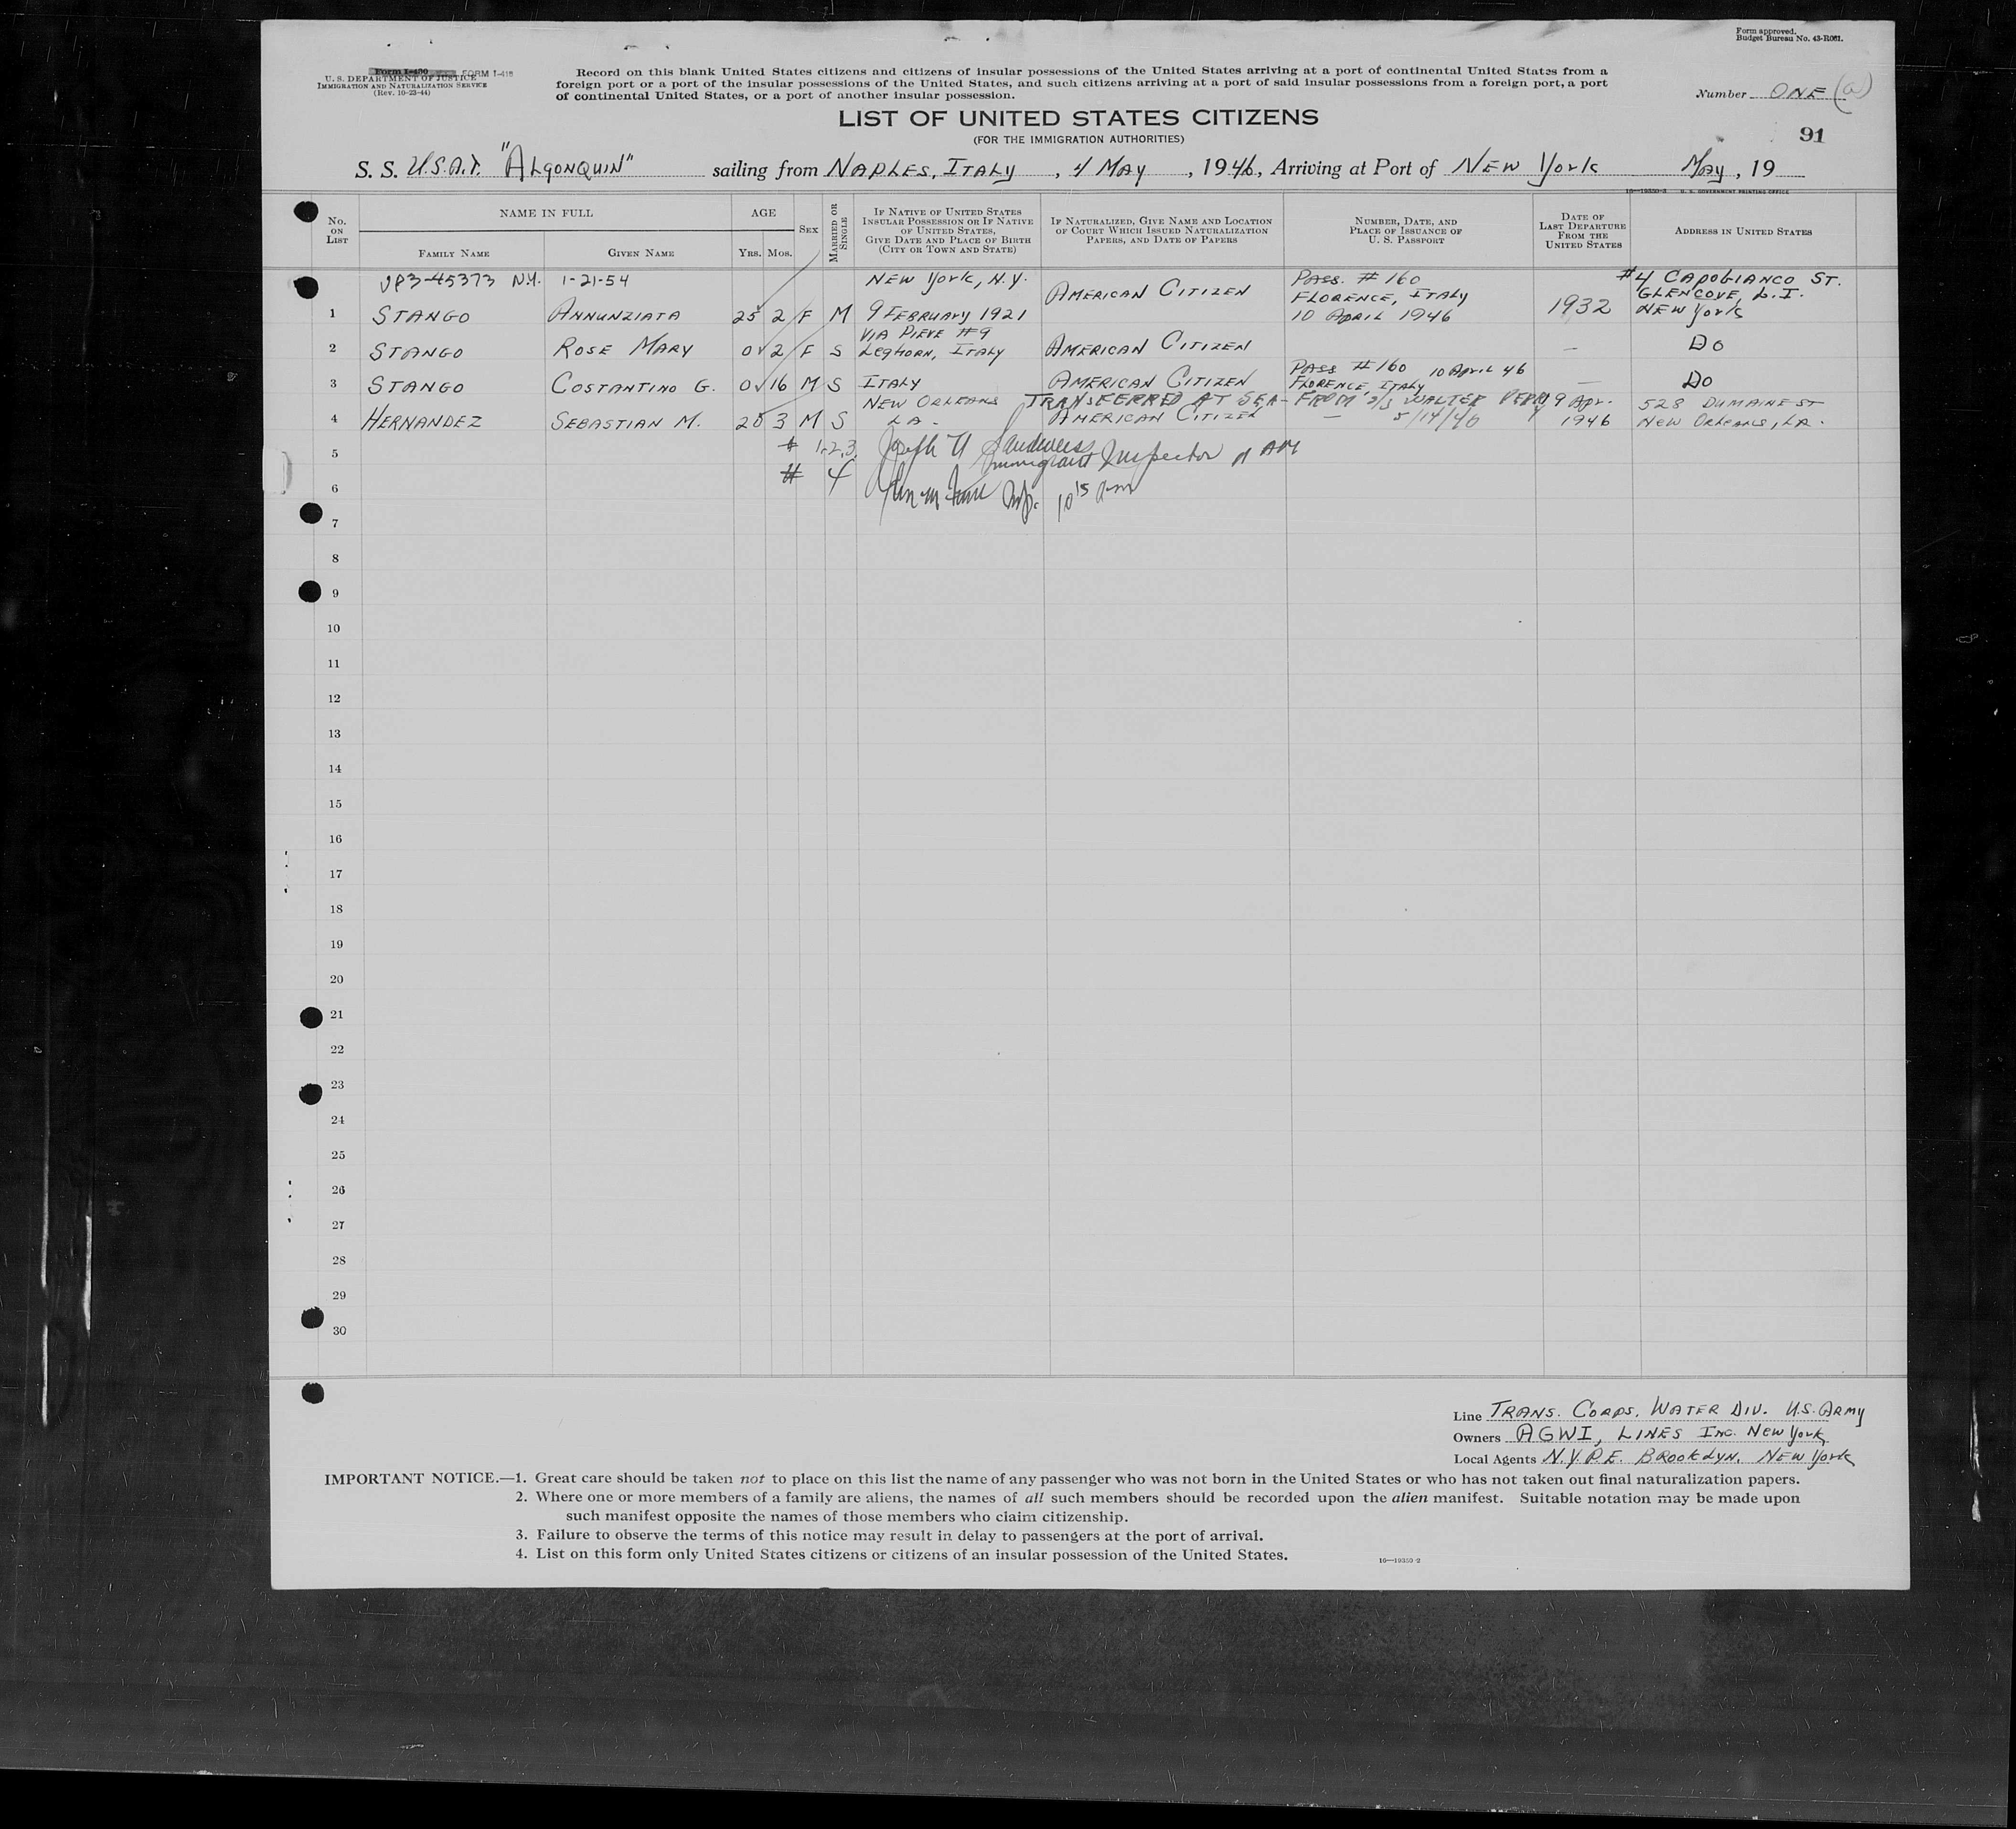 Form approved.
Budget Bureau No. 43-R061.
Form I-430 FORM I-418
U. S. DEPARTMENT OF JUSTICE
IMMIGRATION AND NATURALIZATION SERVICE
(Rev. 10-23-44)
Record on this blank United States citizens and citizens of insular possessions of the United States arriving at a port of continental United States from a
foreign port or a port of the insular possessions of the United States, and such citizens arriving at a port of said insular possessions from a foreign port, a port
of continental United States, or a port of another insular possession.
Number ONE (a)
LIST OF UNITED STATES CITIZENS
(FOR THE IMMIGRATION AUTHORITIES)
91
S. S. U.S.A.T. "ALGONQUIN" sailing from NAPLES, ITALY, 4 MAY, 1946, Arriving at Port of NEW York May, 19
16—19350-2 U. S. GOVERNMENT PRINTING OFFICE
No. on List
NAME IN FULL
FAMILY NAME
GIVEN NAME
AGE
YRS. MOS.
SEX
MARRIED OR SINGLE
IF NATIVE OF UNITED STATES
INSULAR POSSESSION OR IF NATIVE
OF UNITED STATES,
GIVE DATE AND PLACE OF BIRTH
(CITY OR TOWN AND STATE)
IF NATURALIZED, GIVE NAME AND LOCATION
OF COURT WHICH ISSUED NATURALIZATION
PAPERS, AND DATE OF PAPERS
NUMBER, DATE, AND
PLACE OF ISSUANCE OF
U. S. PASSPORT
DATE OF
LAST DEPARTURE
FROM THE
UNITED STATES
ADDRESS IN UNITED STATES
VP3-45373 N.Y. 1-21-54
1 STANGO ANNUNZIATA 25 2 F M NEW York, N.Y. 9 FEBRUARY 1921 AMERICAN CITIZEN PASS. # 160 FLORENCE, ITALY 10 APRIL 1946 1932 #4 CAPOBIANCO ST. GLENCOVE, L.I. NEW York
2 STANGO ROSE MARY 0 2 F S VIA PIEVE #9 LEGHORN, ITALY AMERICAN CITIZEN — DO
3 STANGO COSTANTINO G. 0 16 M S ITALY AMERICAN CITIZEN PASS #160 10 April 46 FLORENCE ITALY — DO
TRANSFERRED AT SEA - FROM S/S WALTER PERRY
4 HERNANDEZ SEBASTIAN M. 20 3 M S NEW ORLEANS LA. AMERICAN CITIZEN — 5/14/46 9 Apr. 1946 528 DUMAINE ST NEW ORLEANS, LA.
5 # 1,2,3 Joseph
Immigrant Inspector AM
6 # 4 10 15 am
7
8
9
10
11
12
13
14
15
16
17
18
19
20
21
22
23
24
25
26
27
28
29
30
Line TRANS. CORPS. WATER DIV. U.S. ARMY
Owners AGWI, LINES INC. NEW York
Local Agents N.Y.P.E. BROOKLYN. NEW York
IMPORTANT NOTICE.—1. Great care should be taken not to place on this list the name of any passenger who was not born in the United States or who has not taken out final naturalization papers.
2. Where one or more members of a family are aliens, the names of all such members should be recorded upon the alien manifest. Suitable notation may be made upon
such manifest opposite the names of those members who claim citizenship.
3. Failure to observe the terms of this notice may result in delay to passengers at the port of arrival.
4. List on this form only United States citizens or citizens of an insular possession of the United States.
16—19350-2